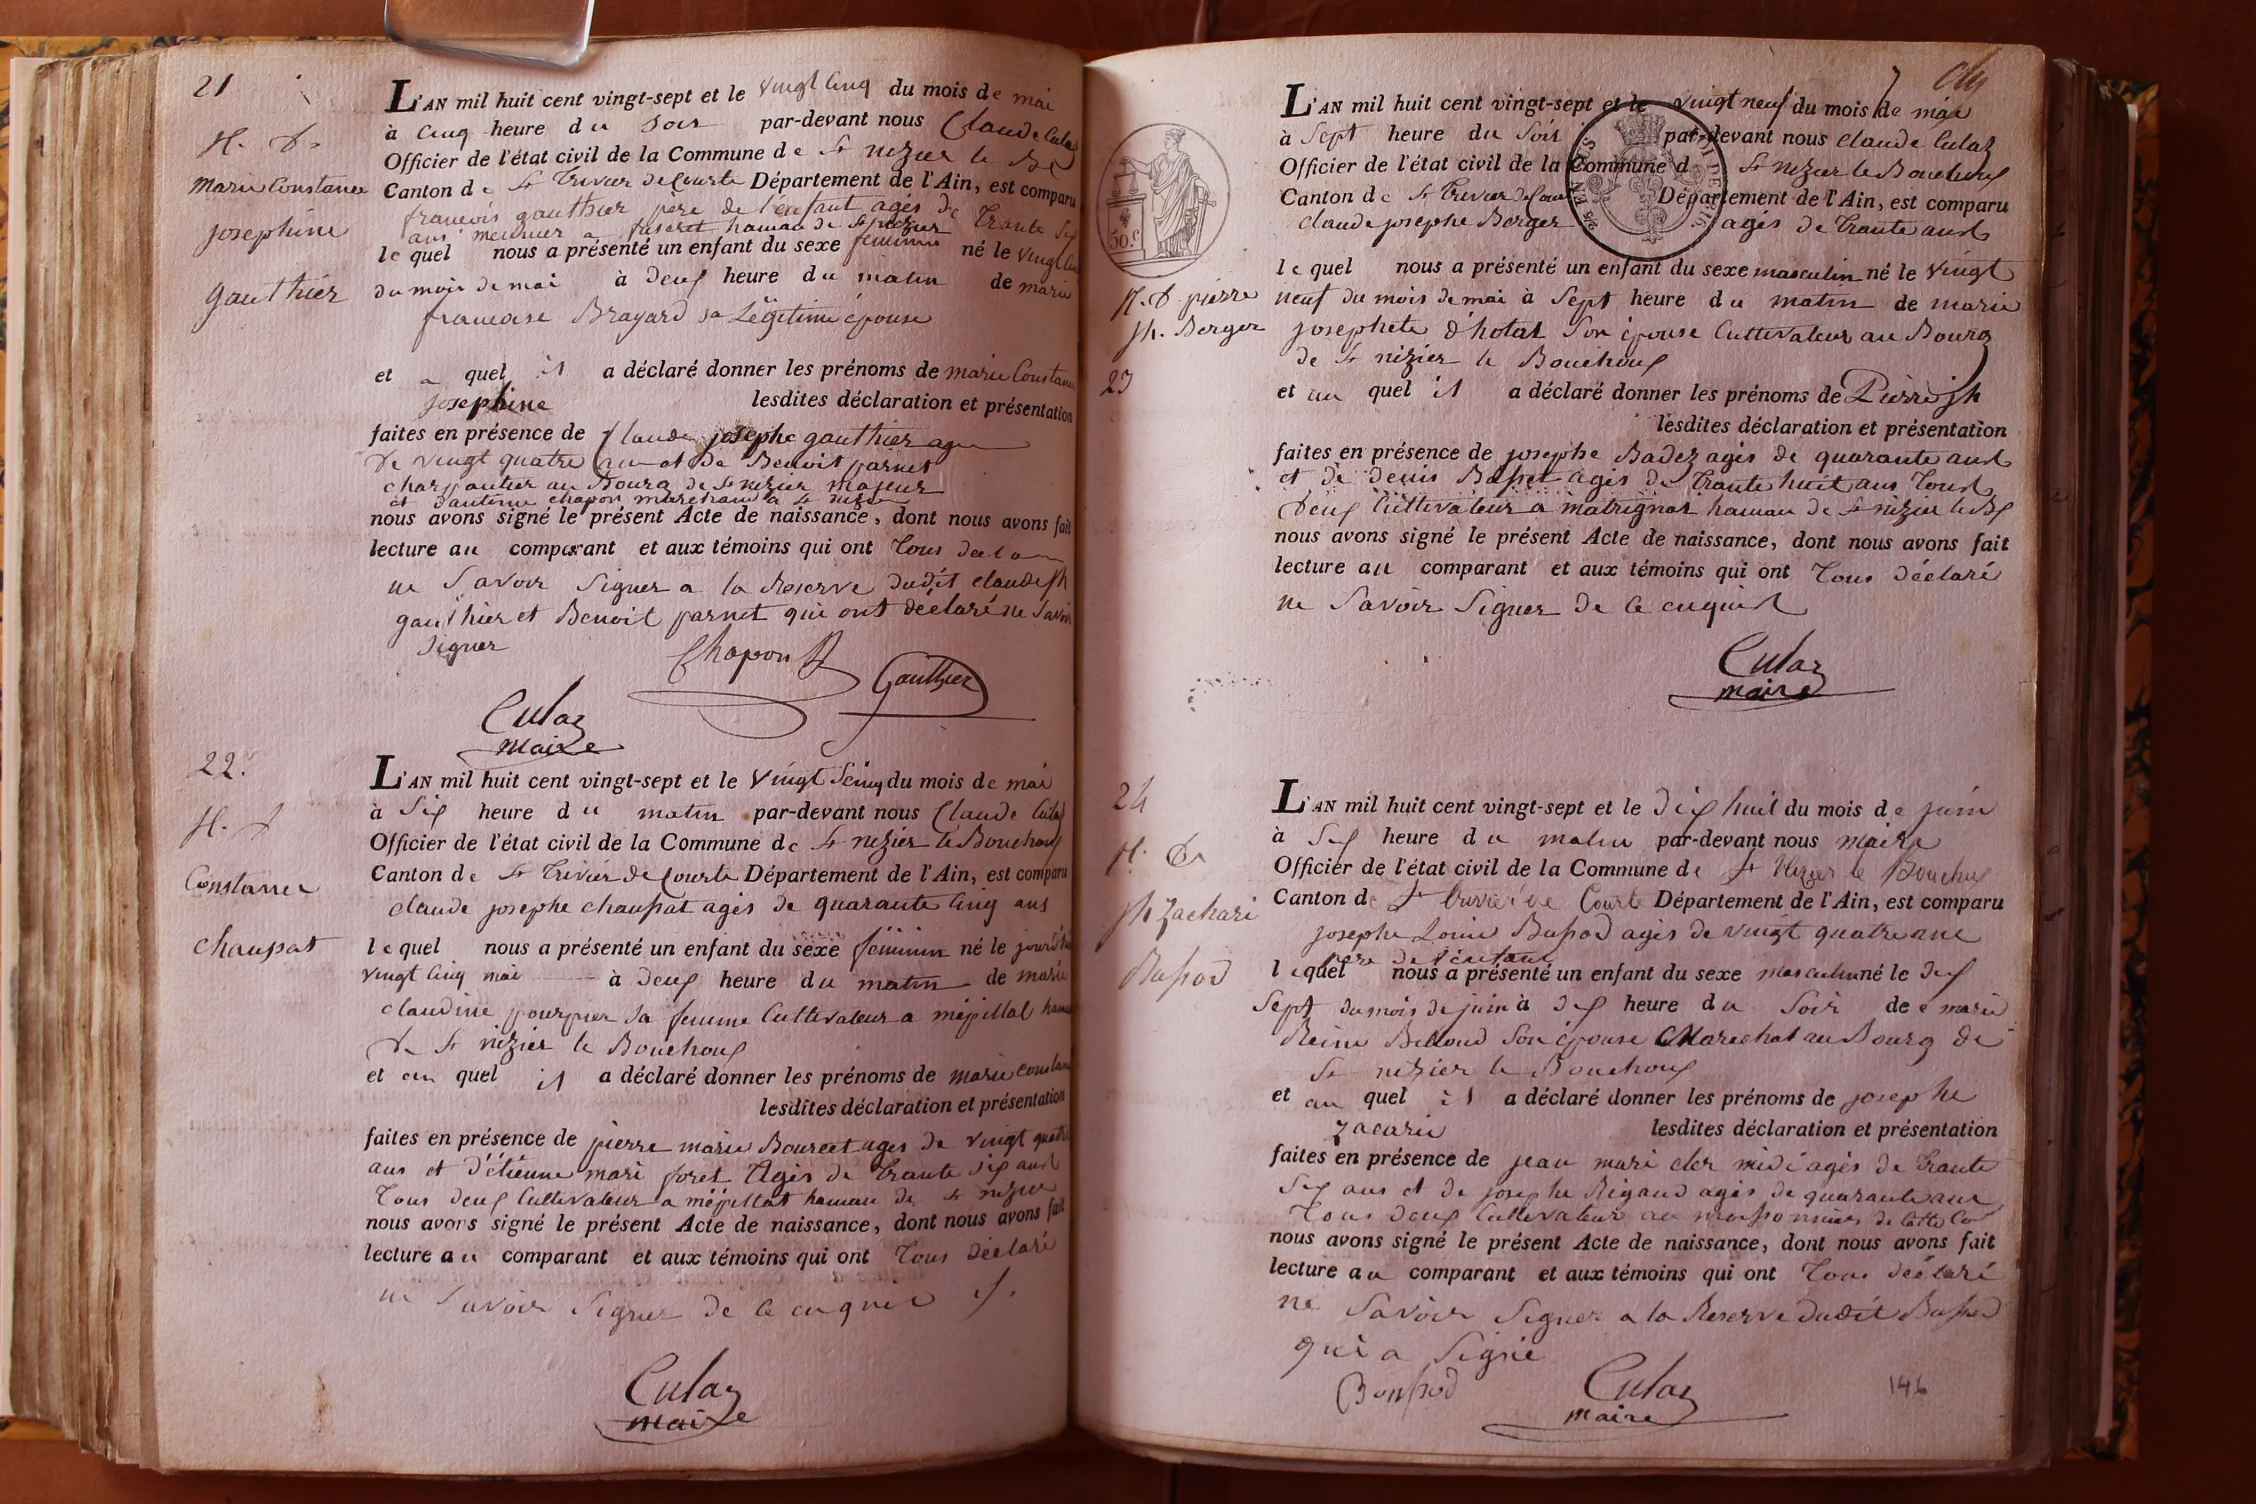 21
L'AN mil huit cent vingt-sept et le vingt cinq du mois de mai
à cinq heure du soir par-devant nous Claude Culaz
Officier de l'état civil de la Commune de St nizier le
Canton de St Trivier de Courte Département de l'Ain, est comparu
francois gauthier pere de l'enfant agés de trante
ans meunier a hamau de St nizier
le quel nous a présenté un enfant du sexe feminin né le vingt
du mois de mai à deux heure du matin de marie
francoise Brayard sa Légitime épouse
et a quel il a déclaré donner les prénoms de marie Constance
josephine lesdites déclaration et présentation
faites en présence de Claude josephe gauthier
de vingt quatre ans et de Benoit parnet
charpantier au Bourg de St nizier majeur
et d'antoine chapon marechand a St nizier
nous avons signé le présent Acte de naissance, dont nous avons fait
lecture au comparant et aux témoins qui ont tous
ne savoir signer a la Reserve dudit claude jh
gauthier et Benoit parnet qui ont déclaré ne savoir
signer
Chapon Gauthier
Culaz
maire
marie Constance
josephine
gauthier
22.
L'AN mil huit cent vingt-sept et le vingt du mois de mai
à six heure du matin par-devant nous Claude Culaz
Officier de l'état civil de la Commune de St nizier le Bouchoux
Canton de St Trivier de Courte Département de l'Ain, est comparu
claude josephe chaupat agés de quarante cinq ans
le quel nous a présenté un enfant du sexe féminin né le
vingt cinq mai à deux heure du matin de marie
claudine sa femme Cultivateur a
de St nizier le Bouchoux
et au quel il a déclaré donner les prénoms de marie constance
lesdites déclaration et présentation
faites en présence de pierre marie agés de vingt quatre
ans et d'étienne mari foret agés de trante six ans
tous deux Cultivateur a hamau de St nizier
nous avons signé le présent Acte de naissance, dont nous avons fait
lecture au comparant et aux témoins qui ont tous déclaré
ne savoir signer de ce enquis
Culaz
maire
Constance
chaupat
L'AN mil huit cent vingt-sept et le vingt neuf du mois de mai
à sept heure du soir par-devant nous claude Culaz
Officier de l'état civil de la Commune d St nizier le Bouchoux
Canton de St Trivier de Cour Département de l'Ain, est comparu
claude josephe Berger agés de trante ans
le quel nous a présenté un enfant du sexe masculin né le vingt
neuf du mois de mai à sept heure du matin de marie
josephete d'hotal son épouse Cultivateur au Bourg
de St nizier le Bouchoux
et au quel il a déclaré donner les prénoms de Pierre jh
lesdites déclaration et présentation
faites en présence de josephe Badez agés de quarante ans
et de denis Basset agés de trante huit ans tous
deux Cultivateur a matrignat hamau de St nizier le Bx
nous avons signé le présent Acte de naissance, dont nous avons fait
lecture au comparant et aux témoins qui ont tous déclaré
ne savoir signer de ce enquis
Culaz
maire
50 c
pierre
jh. Berger
23
24
L'AN mil huit cent vingt-sept et le dix huit du mois de juin
à six heure du matin par-devant nous maire
Officier de l'état civil de la Commune de St Nizier le Bouchoux
Canton de St Courte Département de l'Ain, est comparu
josephe Louis Bussod agés de vingt quatre ans
pere de l'enfant
lequel nous a présenté un enfant du sexe masculin né le dix
sept du mois de juin à dix heure du soir de marie
Reine Belloud son épouse Marechal au Bourg de
St nizier le Bouchoux
et au quel il a déclaré donner les prénoms de josephe
zacarie lesdites déclaration et présentation
faites en présence de jean mari agés de trante
six ans et de josephe Rigaud agés de quarante ans
tous deux Cultivateur au de cette
nous avons signé le présent Acte de naissance, dont nous avons fait
lecture au comparant et aux témoins qui ont tous déclaré
ne savoir signer a la Reserve dudit Bussod
qui a signé
Culaz
maire
146
jh zachari
Bussod